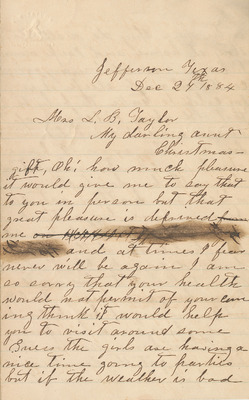 Jefferson Texas
Dec 27th 1884
Mrs L. B. Taylor
My darling aunt
Christmas-
gift, Oh! how much pleasure
it would give me to say that
to you in person but that
great pleasure is deprived
me
and at times I fear
never will be again am
so sorry that your health
would not permit of your com
ing think it would help
you to visit around some
Guess the girls are having a
nice time going to parties
but if the weather is bad